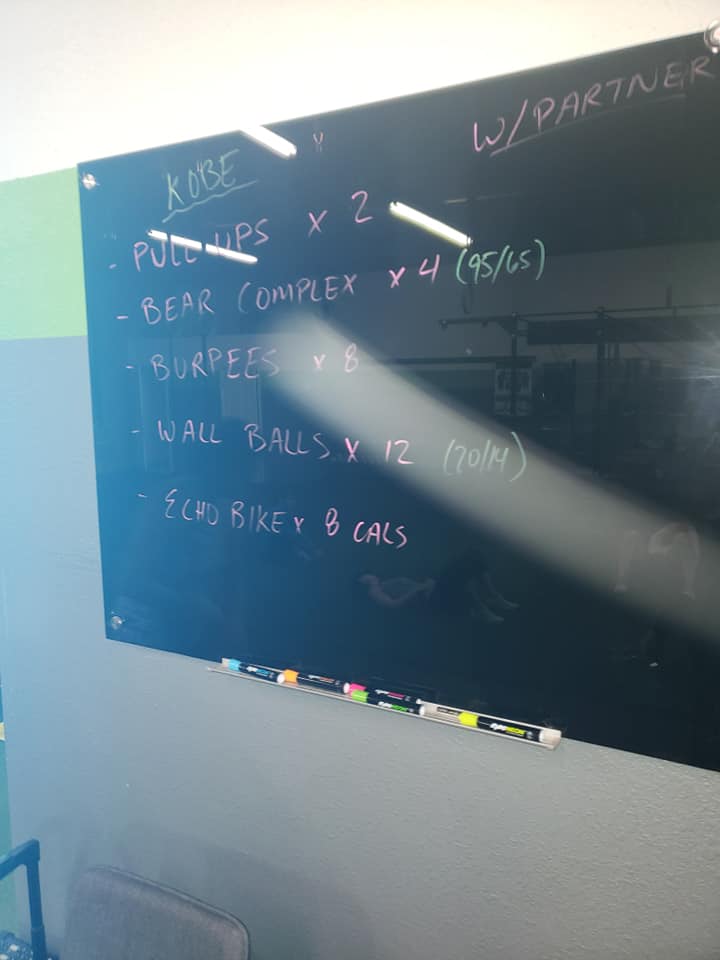 W/PARTNER
KOBE
- PULL UPS x 2
- BEAR COMPLEX x 4 (95/65)
- BURPEES x 8
- WALL BALLS x 12 (20/14)
- ECHO BIKE x 8 CALS